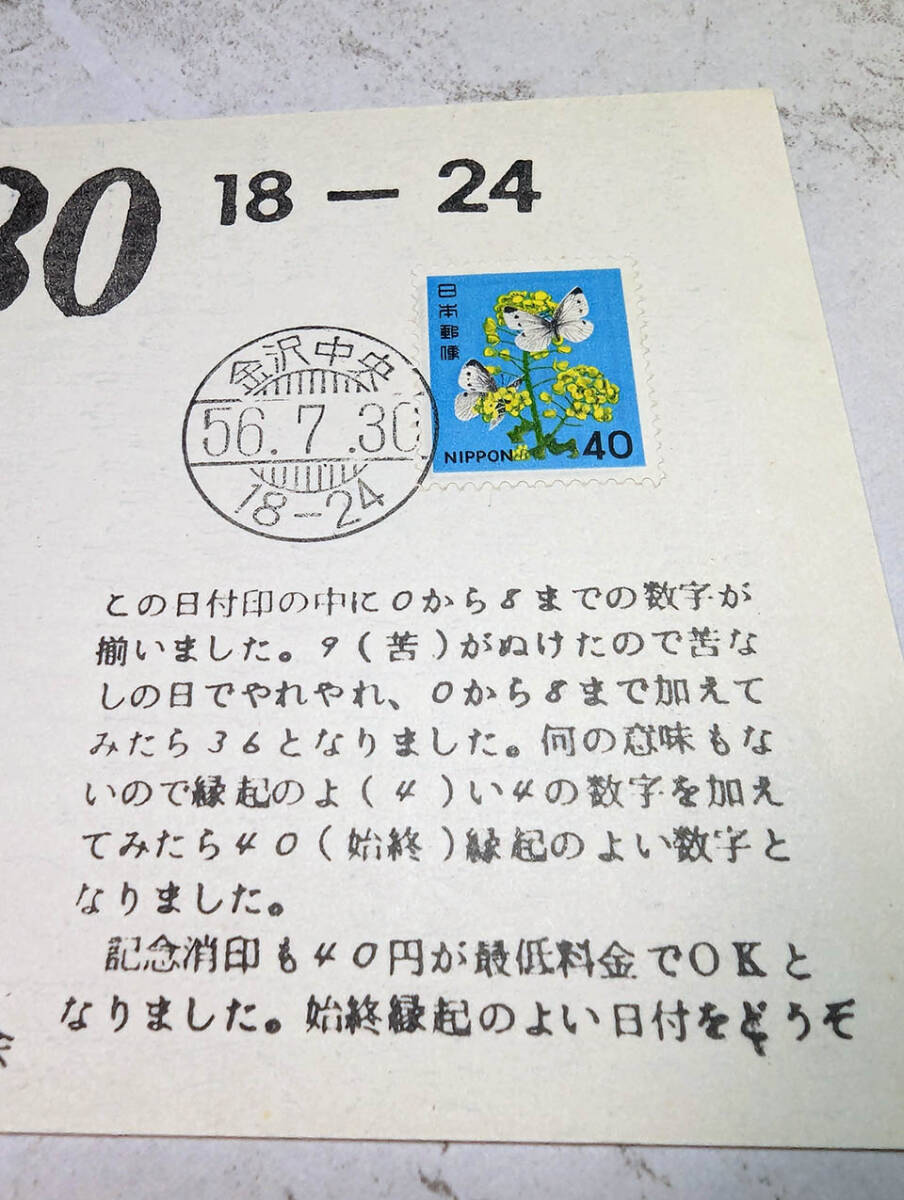 30 18 — 24
日本郵便
NIPPON 40
金沢中央
56.7.30
18-24
この日付印の中に0から8までの数字が
揃いました。9(苦)がぬけたので苦な
しの日でやれやれ、0から8まで加えて
みたら36となりました。何の意味もな
いので縁起のよ(4)い4の数字を加え
てみたら40(始終)縁起のよい数字と
なりました。
記念消印も40円が最低料金でOKと
なりました。始終縁起のよい日付をどうぞ